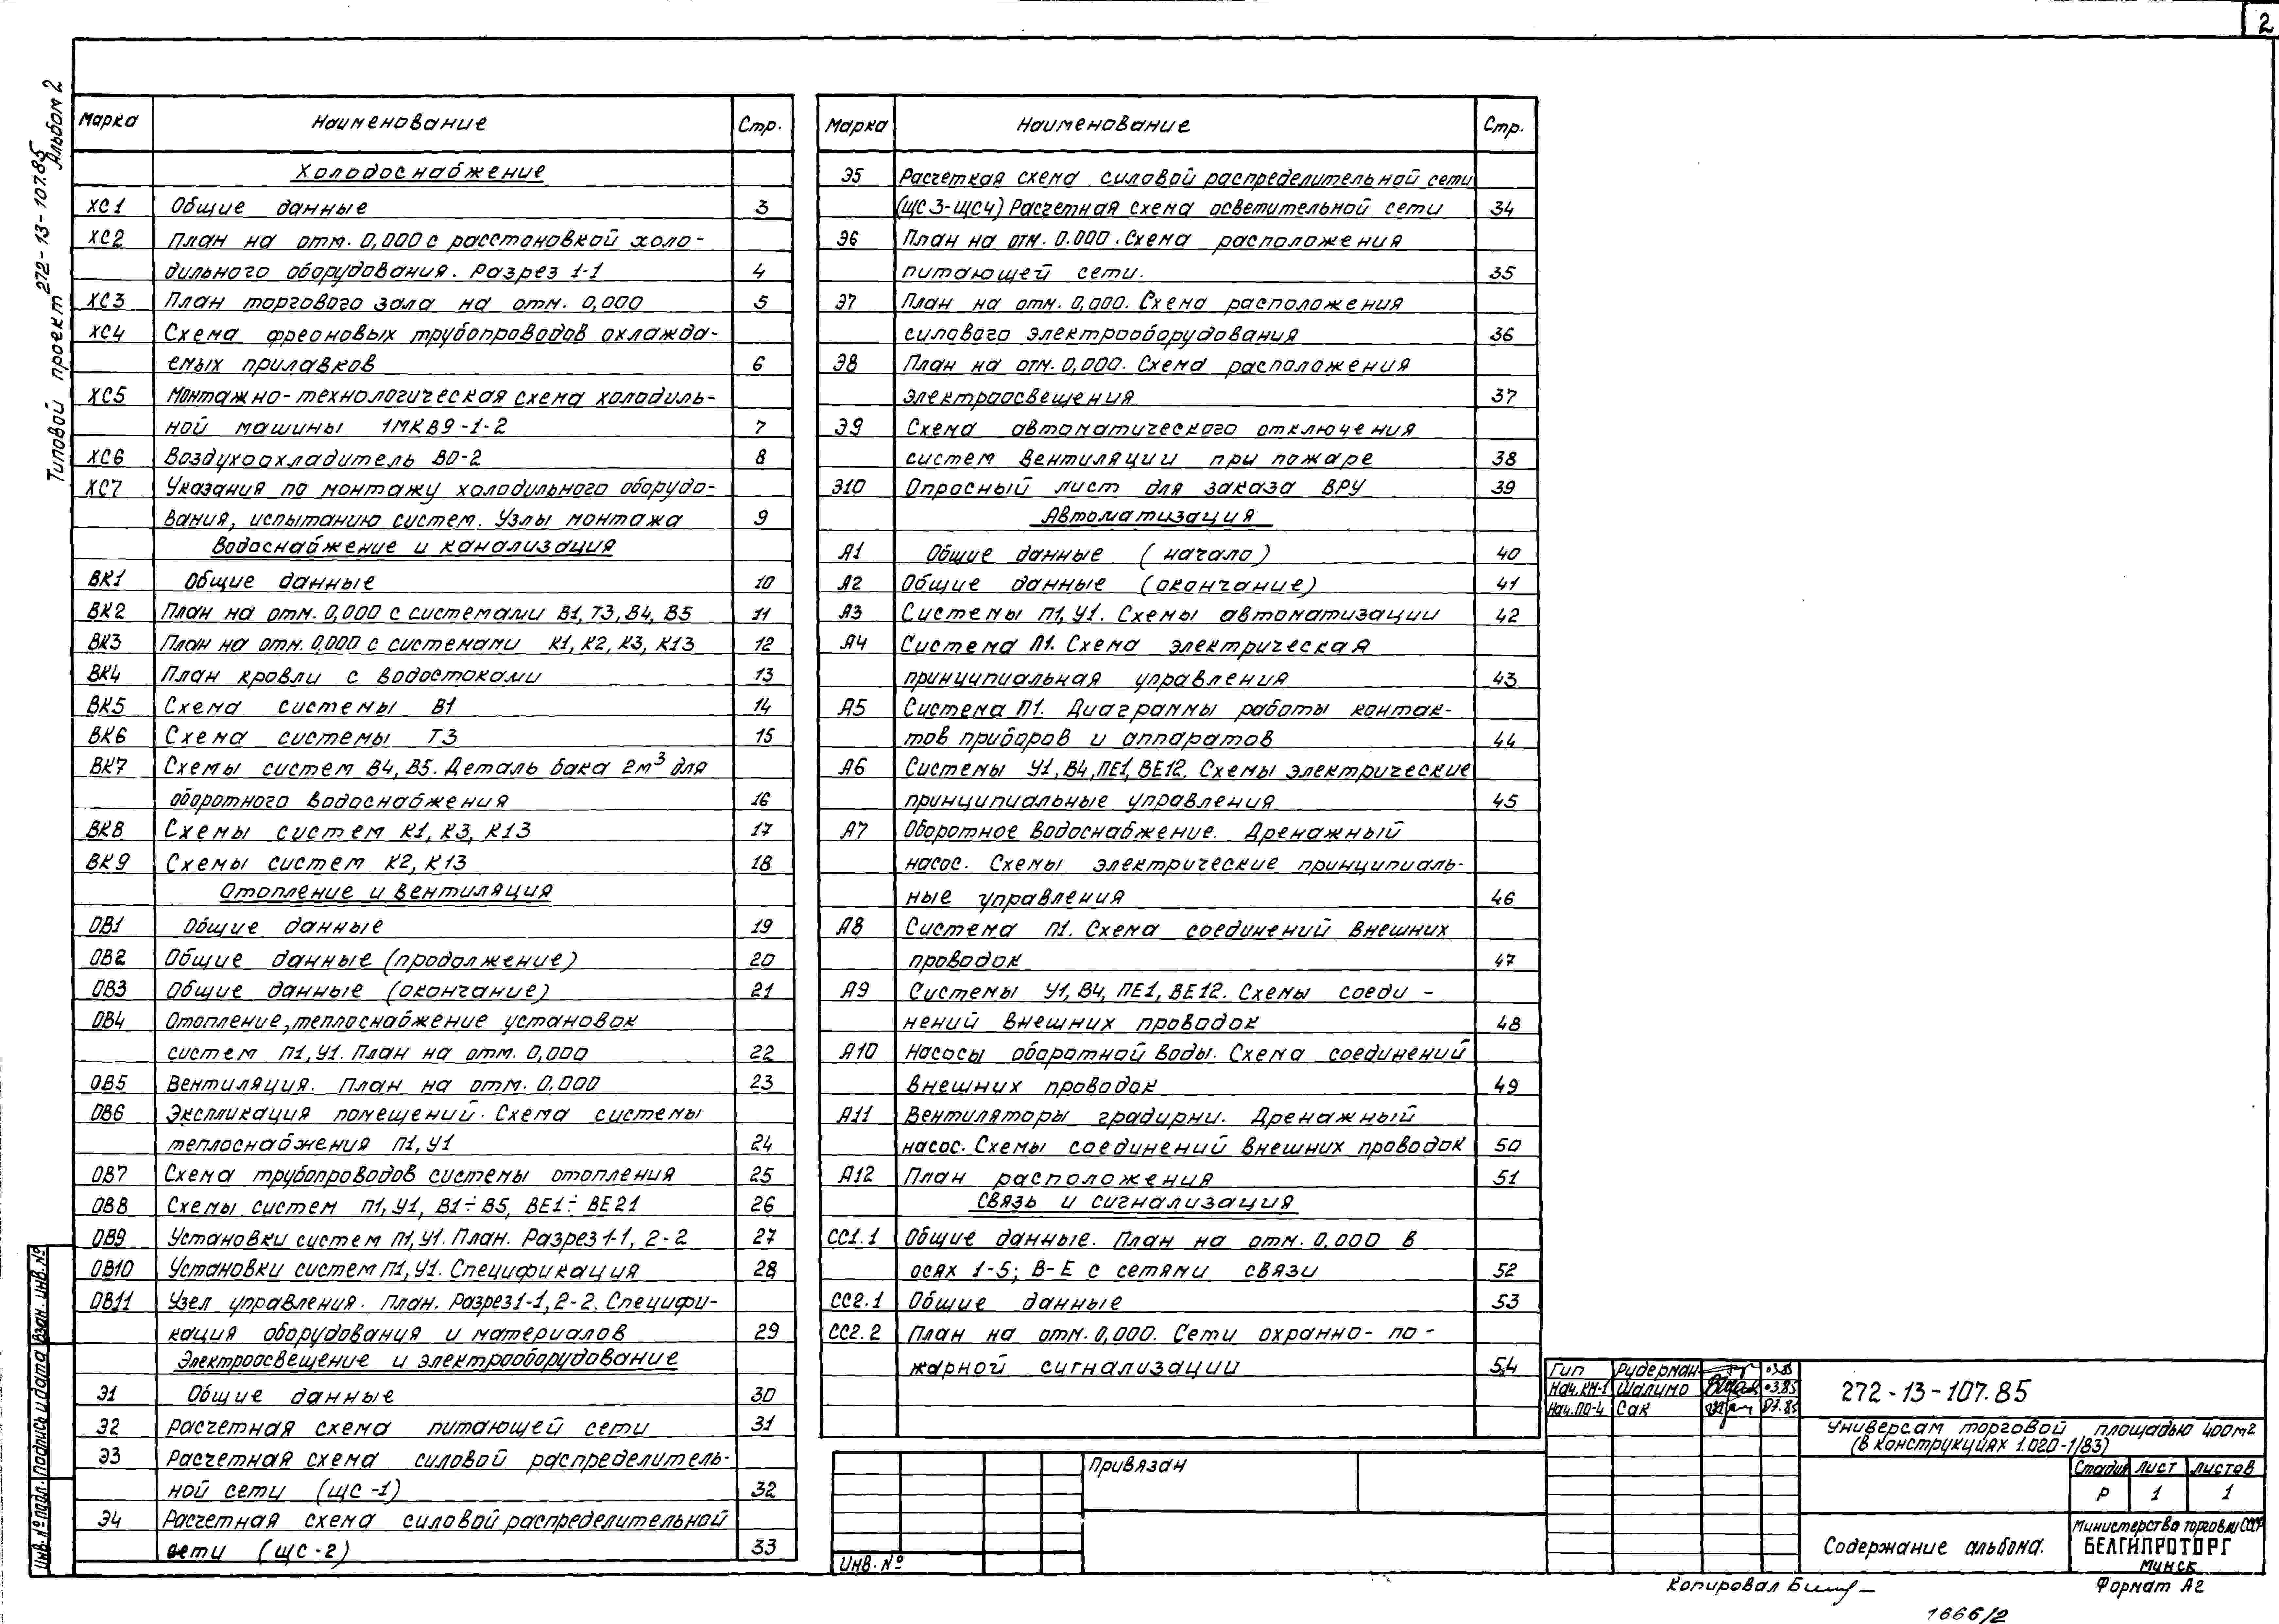 2
Типовой проект 272-13-107.85 Альбом 2
Марка Наименование Стр.
Холодоснабжение
ХС1 Общие данные 3
ХС2 План на отм. 0,000 с расстановкой холо-
дильного оборудования. Разрез 1-1 4
ХС3 План торгового зала на отм. 0,000 5
ХС4 Схема фреоновых трубопроводов охлажда-
емых прилавков 6
ХС5 Монтажно-технологическая схема холодиль-
ной машины 1МКВ9-1-2 7
ХС6 Воздухоохладитель ВО-2 8
ХС7 Указания по монтажу холодильного оборудо-
вания, испытанию систем. Узлы монтажа 9
Водоснабжение и канализация
ВК1 Общие данные 10
ВК2 План на отм. 0,000 с системами В1, Т3, В4, В5 11
ВК3 План на отм. 0,000 с системами К1, К2, К3, К13 12
ВК4 План кровли с водостоками 13
ВК5 Схема системы В1 14
ВК6 Схема системы Т3 15
ВК7 Схемы систем В4, В5. Деталь бака 2м³ для
оборотного водоснабжения 16
ВК8 Схемы систем К1, К3, К13 17
ВК9 Схемы систем К2, К13 18
Отопление и вентиляция
ОВ1 Общие данные 19
ОВ2 Общие данные (продолжение) 20
ОВ3 Общие данные (окончание) 21
ОВ4 Отопление, теплоснабжение установок
систем П1, У1. План на отм. 0,000 22
ОВ5 Вентиляция. План на отм. 0.000 23
ОВ6 Экспликация помещений. Схема системы
теплоснабжения П1, У1 24
ОВ7 Схема трубопроводов системы отопления 25
ОВ8 Схемы систем П1, У1, В1÷В5, ВЕ1÷ВЕ21 26
ОВ9 Установки систем П1, У1. План. Разрез 1-1, 2-2 27
ОВ10 Установки систем П1, У1. Спецификация 28
ОВ11 Узел управления. План. Разрез 1-1, 2-2. Специфи-
кация оборудования и материалов 29
Электроосвещение и электрооборудование
Э1 Общие данные 30
Э2 Расчетная схема питающей сети 31
Э3 Расчетная схема силовой распределитель-
ной сети (ЩС-1) 32
Э4 Расчетная схема силовой распределительной
сети (ЩС-2) 33
Марка Наименование Стр.
Э5 Расчеткая схема силовой распределительной сети
(ЩС3-ЩС4) Расчетная схема осветительной сети 34
Э6 План на отм. 0.000. Схема расположения
питающей сети. 35
Э7 План на отм. 0,000. Схема расположения
силового электрооборудования 36
Э8 План на отм. 0,000. Схема расположения
электроосвещения 37
Э9 Схема автоматического отключения
систем вентиляции при пожаре 38
Э10 Опросный лист для заказа ВРУ 39
Автоматизация
А1 Общие данные (начало) 40
А2 Общие данные (окончание) 41
А3 Системы П1, У1. Схемы автоматизации 42
А4 Система П1. Схема электрическая
принципиальная управления 43
А5 Система П1. Диаграммы работы контак-
тов приборов и аппаратов 44
А6 Системы У1, В4, ПЕ1, ВЕ12. Схемы электрические
принципиальные управления 45
А7 Оборотное водоснабжение. Дренажный
насос. Схемы электрические принципиаль-
ные управления 46
А8 Система П1. Схема соединений внешних
проводок 47
А9 Системы У1, В4, ПЕ1, ВЕ12. Схемы соеди-
нений внешних проводок 48
А10 Насосы оборотной воды. Схема соединений
внешних проводок 49
А11 Вентиляторы градирни. Дренажный
насос. Схемы соединений внешних проводок 50
А12 План расположения 51
Связь и сигнализация
СС1.1 Общие данные. План на отм. 0,000 в
осях 1-5; В-Е с сетями связи 52
СС2.1 Общие данные 53
СС2.2 План на отм. 0,000. Сети охранно-по-
жарной сигнализации 54
Гип Рудерман 03.85
Нач.КМ-1 Шалимо 03.85
Нач.ПО-4 Сак 03.85
272-13-107.85
Универсам торговой площадью 400м2
(в конструкциях 1.020-1/83)
Стадия Лист Листов
Р 1 1
Содержание альбома.
Министерство торговли СССР
БЕЛГИПРОТОРГ
Минск
Привязан
Инв. №
Инв. № подл. Подпись и дата Взам. инв. №
Копировал
Формат А2
1666/2